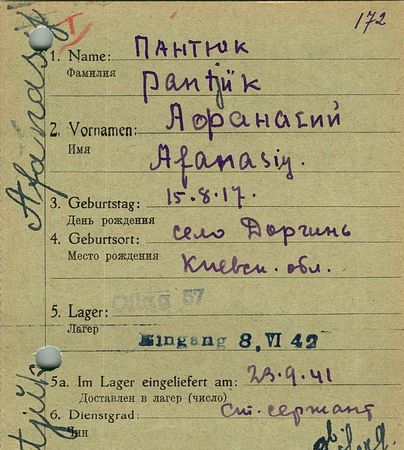 172
1. Name: ПАНТЮК
Фамилия
Pantjük
2. Vornamen: Афанасий
Имя
Afanasiy.
3. Geburtstag: 15.8.17.
День рождения
4. Geburtsort: село Доргинь
Место рождения
Киевск. обл.
5. Lager: Oflag 57
Лагер
Eingang 8. VI 42
5a. Im Lager eingeliefert am: 23.9.41
Доставлен в лагер (число)
6. Dienstgrad: ст. сержант
Чин
Afanasiy